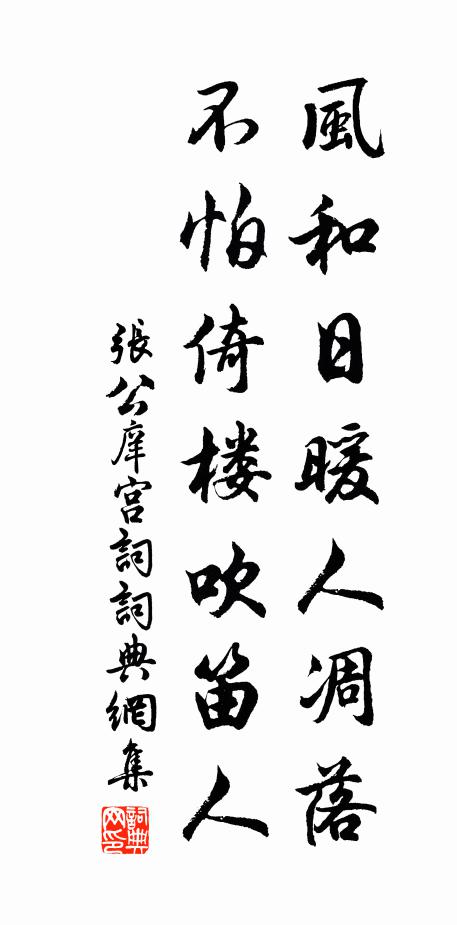 風和日暖人凋落
不怕倚楼吹笛人
張公庠宮詞詞典網集
詞典網印